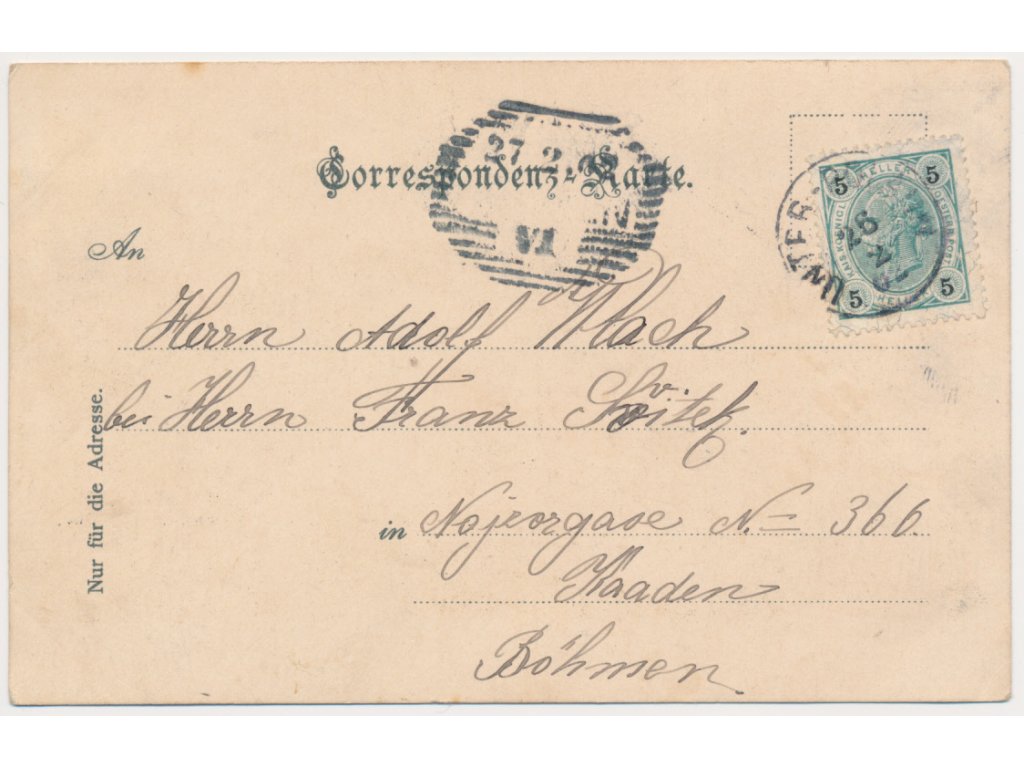 Correspondenz-Karte.
27 2
VI
An
Herrn Adolf Wlach
bei Herrn Franz Svitek.
in
N= 366.
Kaaden
Böhmen.
Nur für die Adresse.
5 HELLER 5
5 HELLER 5
UNTER
26